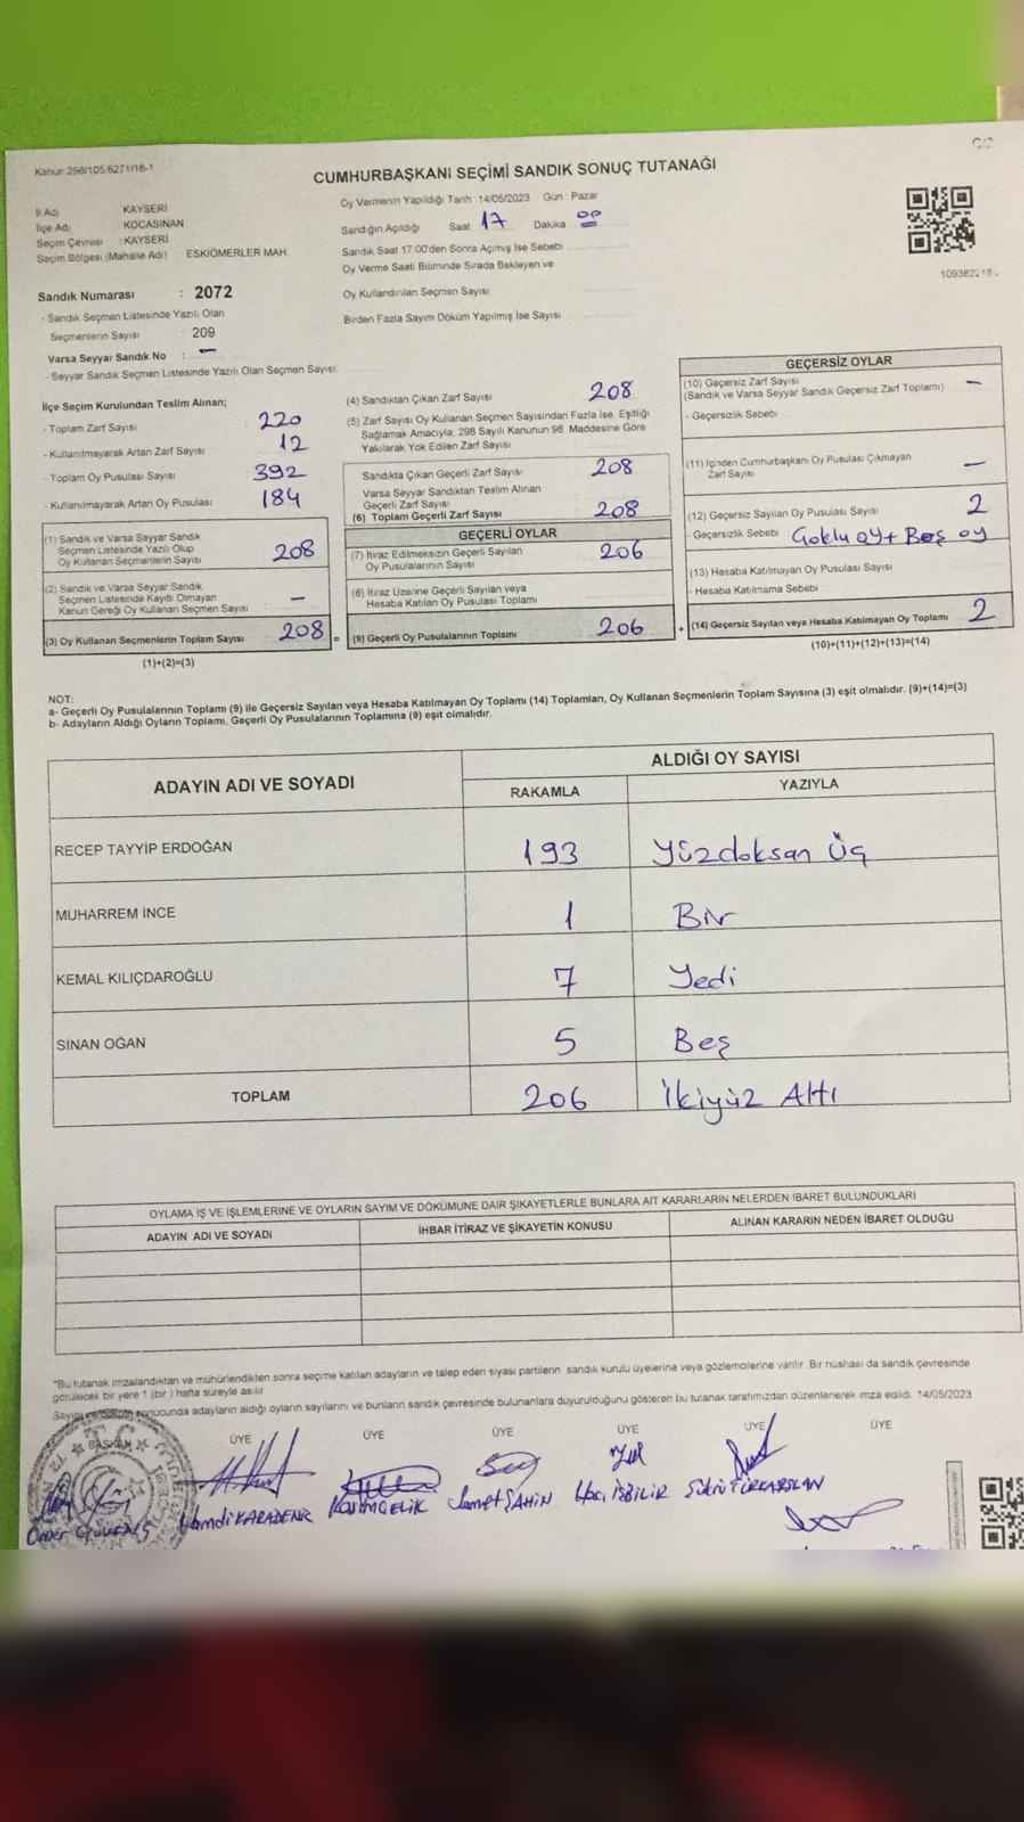 Kanun: 298/105/6271/16-1
CUMHURBAŞKANI SEÇİMİ SANDIK SONUÇ TUTANAĞI
Oy Vermenin Yapıldığı Tarih :14/05/2023 Gün : Pazar
İl Adı : KAYSERİ
İlçe Adı : KOCASİNAN
Seçim Çevresi : KAYSERİ
Seçim Bölgesi (Mahalle Adı) ESKİÖMERLER MAH.
Sandığın Açıldığı Saat 17 Dakika 00
Sandık Saat 17:00'den Sonra Açılmış İse Sebebi
Oy Verme Saati Bitiminde Sırada Bekleyen ve
Oy Kullandırılan Seçmen Sayısı
Birden Fazla Sayım Döküm Yapılmış İse Sayısı
Sandık Numarası : 2072
- Sandık Seçmen Listesinde Yazılı Olan
Seçmenlerin Sayısı : 209
Varsa Seyyar Sandık No : -
- Seyyar Sandık Seçmen Listesinde Yazılı Olan Seçmen Sayısı:
İlçe Seçim Kurulundan Teslim Alınan;
- Toplam Zarf Sayısı 220
- Kullanılmayarak Artan Zarf Sayısı 12
- Toplam Oy Pusulası Sayısı 392
- Kullanılmayarak Artan Oy Pusulası 184
(1) Sandık ve Varsa Seyyar Sandık
Seçmen Listesinde Yazılı Olup
Oy Kullanan Seçmenlerin Sayısı 208
(2) Sandık ve Varsa Seyyar Sandık
Seçmen Listesinde Kaydı Olmayan
Kanun Gereği Oy Kullanan Seçmen Sayısı -
(3) Oy Kullanan Seçmenlerin Toplam Sayısı 208 =
(1)+(2)=(3)
(4) Sandıktan Çıkan Zarf Sayısı 208
(5) Zarf Sayısı Oy Kullanan Seçmen Sayısından Fazla İse, Eşitliği
Sağlamak Amacıyla, 298 Sayılı Kanunun 98. Maddesine Göre
Yakılarak Yok Edilen Zarf Sayısı
Sandıkta Çıkan Geçerli Zarf Sayısı 208
Varsa Seyyar Sandıktan Teslim Alınan
Geçerli Zarf Sayısı
(6) Toplam Geçerli Zarf Sayısı 208
GEÇERLİ OYLAR
(7) İtiraz Edilmeksizin Geçerli Sayılan
Oy Pusulalarının Sayısı 206
(8) İtiraz Üzerine Geçerli Sayılan veya
Hesaba Katılan Oy Pusulası Toplamı
(9) Geçerli Oy Pusulalarının Toplamı 206 +
GEÇERSİZ OYLAR
(10) Geçersiz Zarf Sayısı
(Sandık ve Varsa Seyyar Sandık Geçersiz Zarf Toplamı) -
- Geçersizlik Sebebi
(11) İçinden Cumhurbaşkanı Oy Pusulası Çıkmayan
Zarf Sayısı -
(12) Geçersiz Sayılan Oy Pusulası Sayısı 2
- Geçersizlik Sebebi Çoklu oy + Boş oy
(13) Hesaba Katılmayan Oy Pusulası Sayısı
- Hesaba Katılmama Sebebi
(14) Geçersiz Sayılan veya Hesaba Katılmayan Oy Toplamı 2
(10)+(11)+(12)+(13)=(14)
NOT:
a- Geçerli Oy Pusulalarının Toplamı (9) ile Geçersiz Sayılan veya Hesaba Katılmayan Oy Toplamı (14) Toplamları, Oy Kullanan Seçmenlerin Toplam Sayısına (3) eşit olmalıdır. (9)+(14)=(3)
b- Adayların Aldığı Oyların Toplamı, Geçerli Oy Pusulalarının Toplamına (9) eşit olmalıdır.
ADAYIN ADI VE SOYADI
ALDIĞI OY SAYISI
RAKAMLA YAZIYLA
RECEP TAYYİP ERDOĞAN 193 Yüzdoksan Üç
MUHARREM İNCE 1 Bir
KEMAL KILIÇDAROĞLU 7 Yedi
SİNAN OĞAN 5 Beş
TOPLAM 206 İkiyüz Altı
OYLAMA İŞ VE İŞLEMLERİNE VE OYLARIN SAYIM VE DÖKÜMÜNE DAİR ŞİKAYETLERLE BUNLARA AİT KARARLARIN NELERDEN İBARET BULUNDUKLARI
ADAYIN ADI VE SOYADI İHBAR İTİRAZ VE ŞİKAYETİN KONUSU ALINAN KARARIN NEDEN İBARET OLDUĞU
"Bu tutanak imzalandıktan ve mühürlendikten sonra seçime katılan adayların ve talep eden siyasi partilerin sandık kurulu üyelerine veya gözlemcilerine verilir. Bir nüshası da sandık çevresinde
görülecek bir yere 1 (bir) hafta süreyle asılır.
sonucunda adayların aldığı oyların sayılarını ve bunların sandık çevresinde bulunanlara duyurulduğunu gösteren bu tutanak tarafımızdan düzenlenerek imza edildi. 14/05/2023
BAŞKAN ÜYE ÜYE ÜYE ÜYE ÜYE ÜYE
Ömer Hamdi KARADENİZ ÇELİK Samet ŞAHİN İŞBİLİR Şükrü TÜRKARSLAN